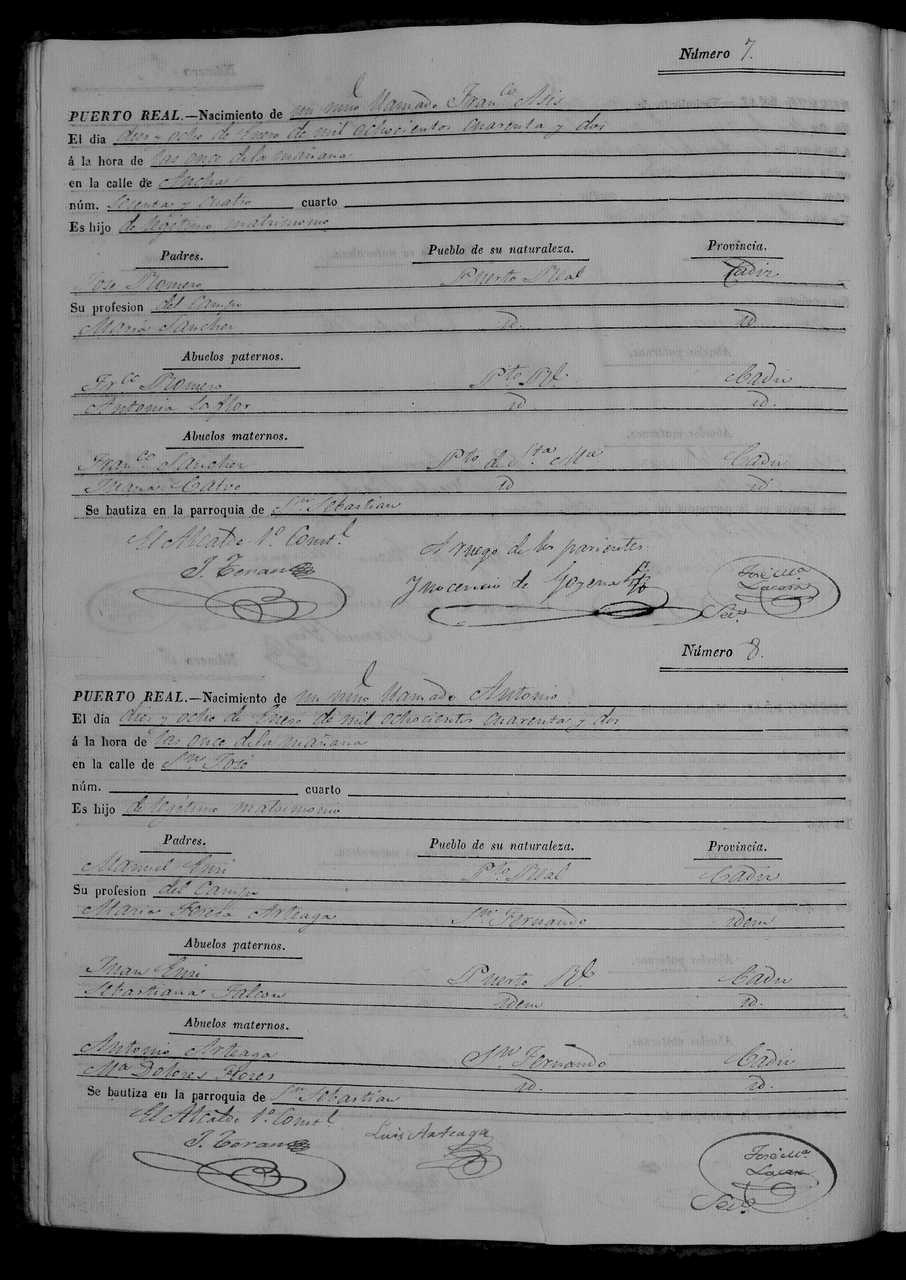 Número 7.
PUERTO REAL.—Nacimiento de un niño llamado Franco Asis
El dia diez y ocho de Enero de mil ochocientos cuarenta y dos
á la hora de las once de la mañana
en la calle de Ancha
núm. sesenta y cuatro cuarto
Es hijo de legitimo matrimonio
Padres. Pueblo de su naturaleza. Provincia.
Jose Romero Puerto Real Cadiz
Su profesion del Campo
Maria Sanchez id id.
Abuelos paternos.
Frco Romero Pto Rl. Cadiz
Antonia la flor id id.
Abuelos maternos.
Franco Sanchez Pto de Sta Ma Cadiz
Juana Calvo id id
Se bautiza en la parroquia de Sn Sebastian
El Alcalde 1o. Constl.
A ruego de los parientes
J. Teran
Ynocencio de Goyena
José Ma
Lacave
Seco
Número 8.
PUERTO REAL.—Nacimiento de un niño llamado Antonio
El dia diez y ocho de Enero de mil ochocientos cuarenta y dos
á la hora de las once de la mañana
en la calle de Sn José
núm. cuarto
Es hijo de legitimo matrimonio
Padres. Pueblo de su naturaleza. Provincia.
Manuel Pto. Real Cadiz
Su profesion del Campo
Maria Teresa Arteaga Sn Fernando idem
Abuelos paternos.
Juan Puerto Rl. Cadiz
Sebastiana Falcon idem id.
Abuelos maternos.
Antonio Arteaga Sn Fernando Cadiz
Ma Dolores Flores id. id.
Se bautiza en la parroquia de Sn Sebastian
El Alcalde 1o. Constl
J. Teran
Luis Arteaga
José Ma
Lacave
Seco